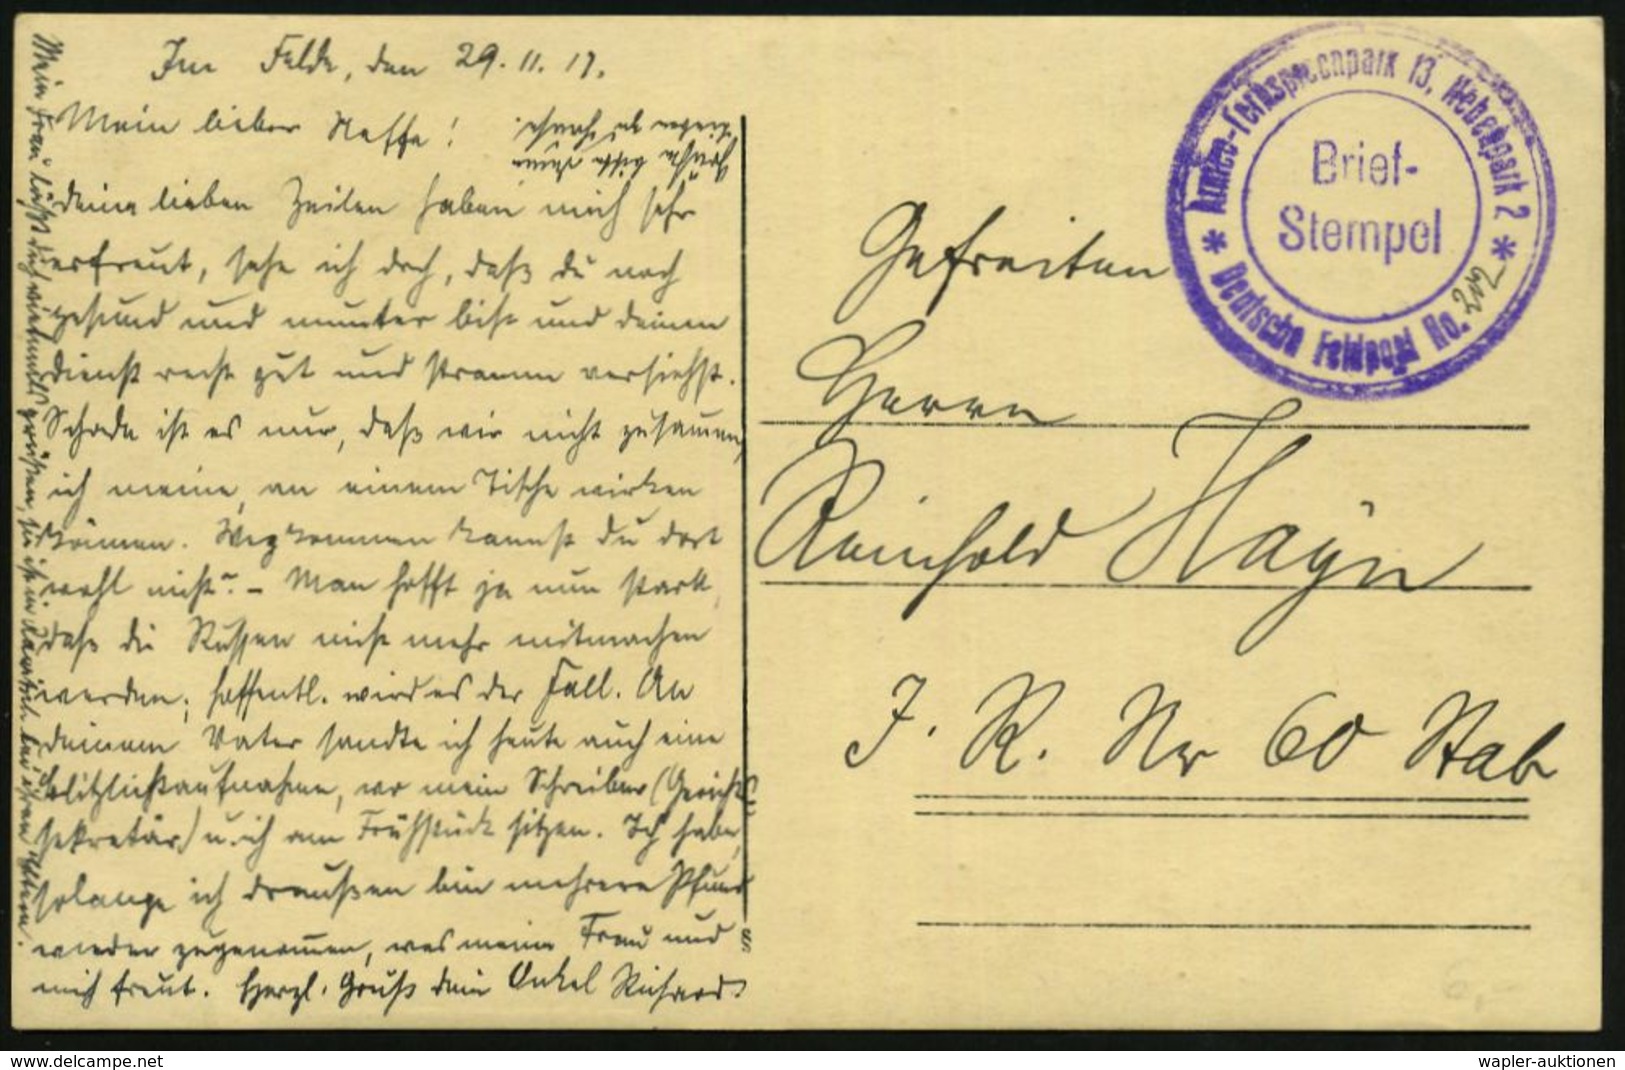 Im Felde, den 29. 11. 17.
Mein lieber Neffe!
Grüße bitte Deine
lieben zu Hause.
deine lieben Zeilen haben mich sehr
erfreut, sehe ich doch, daß du noch
gesund und munter bist und deinen
Dienst recht gut und stramm versiehst.
Schade ist es nur, daß wir nicht zusammen,
ich meine, an einem Tische wirken
können. Wegkommen kannst du dort
wohl nicht? – Man hofft ja nun stark,
daß die Russen nicht mehr mitmachen
werden; hoffentl. wird es der Fall. An
deinem Vater sandte ich heute auch eine
Blitzlichtaufnahme, wo mein Schreiber (Gerichts-
sekretär) u. ich am Frühstück sitzen. Ich habe,
solange ich draußen bin mehrere Pfund
wieder zugenommen, was meine Frau und
mich freut. Herzl. Gruß dein Onkel Richard
Mein Frau läßt dich vielmals grüßen, sie ist in bei ihren Eltern.
Armee-Fernsprechpark 13, Nebenpark 2
Brief-
Stempel
* Deutsche Feldpost No. 202 *
Gefreiten
Herrn
Reinhold Hayn
I. R. Nr 60 Stab
6,-
www.delcampe.net
wapler-auktionen